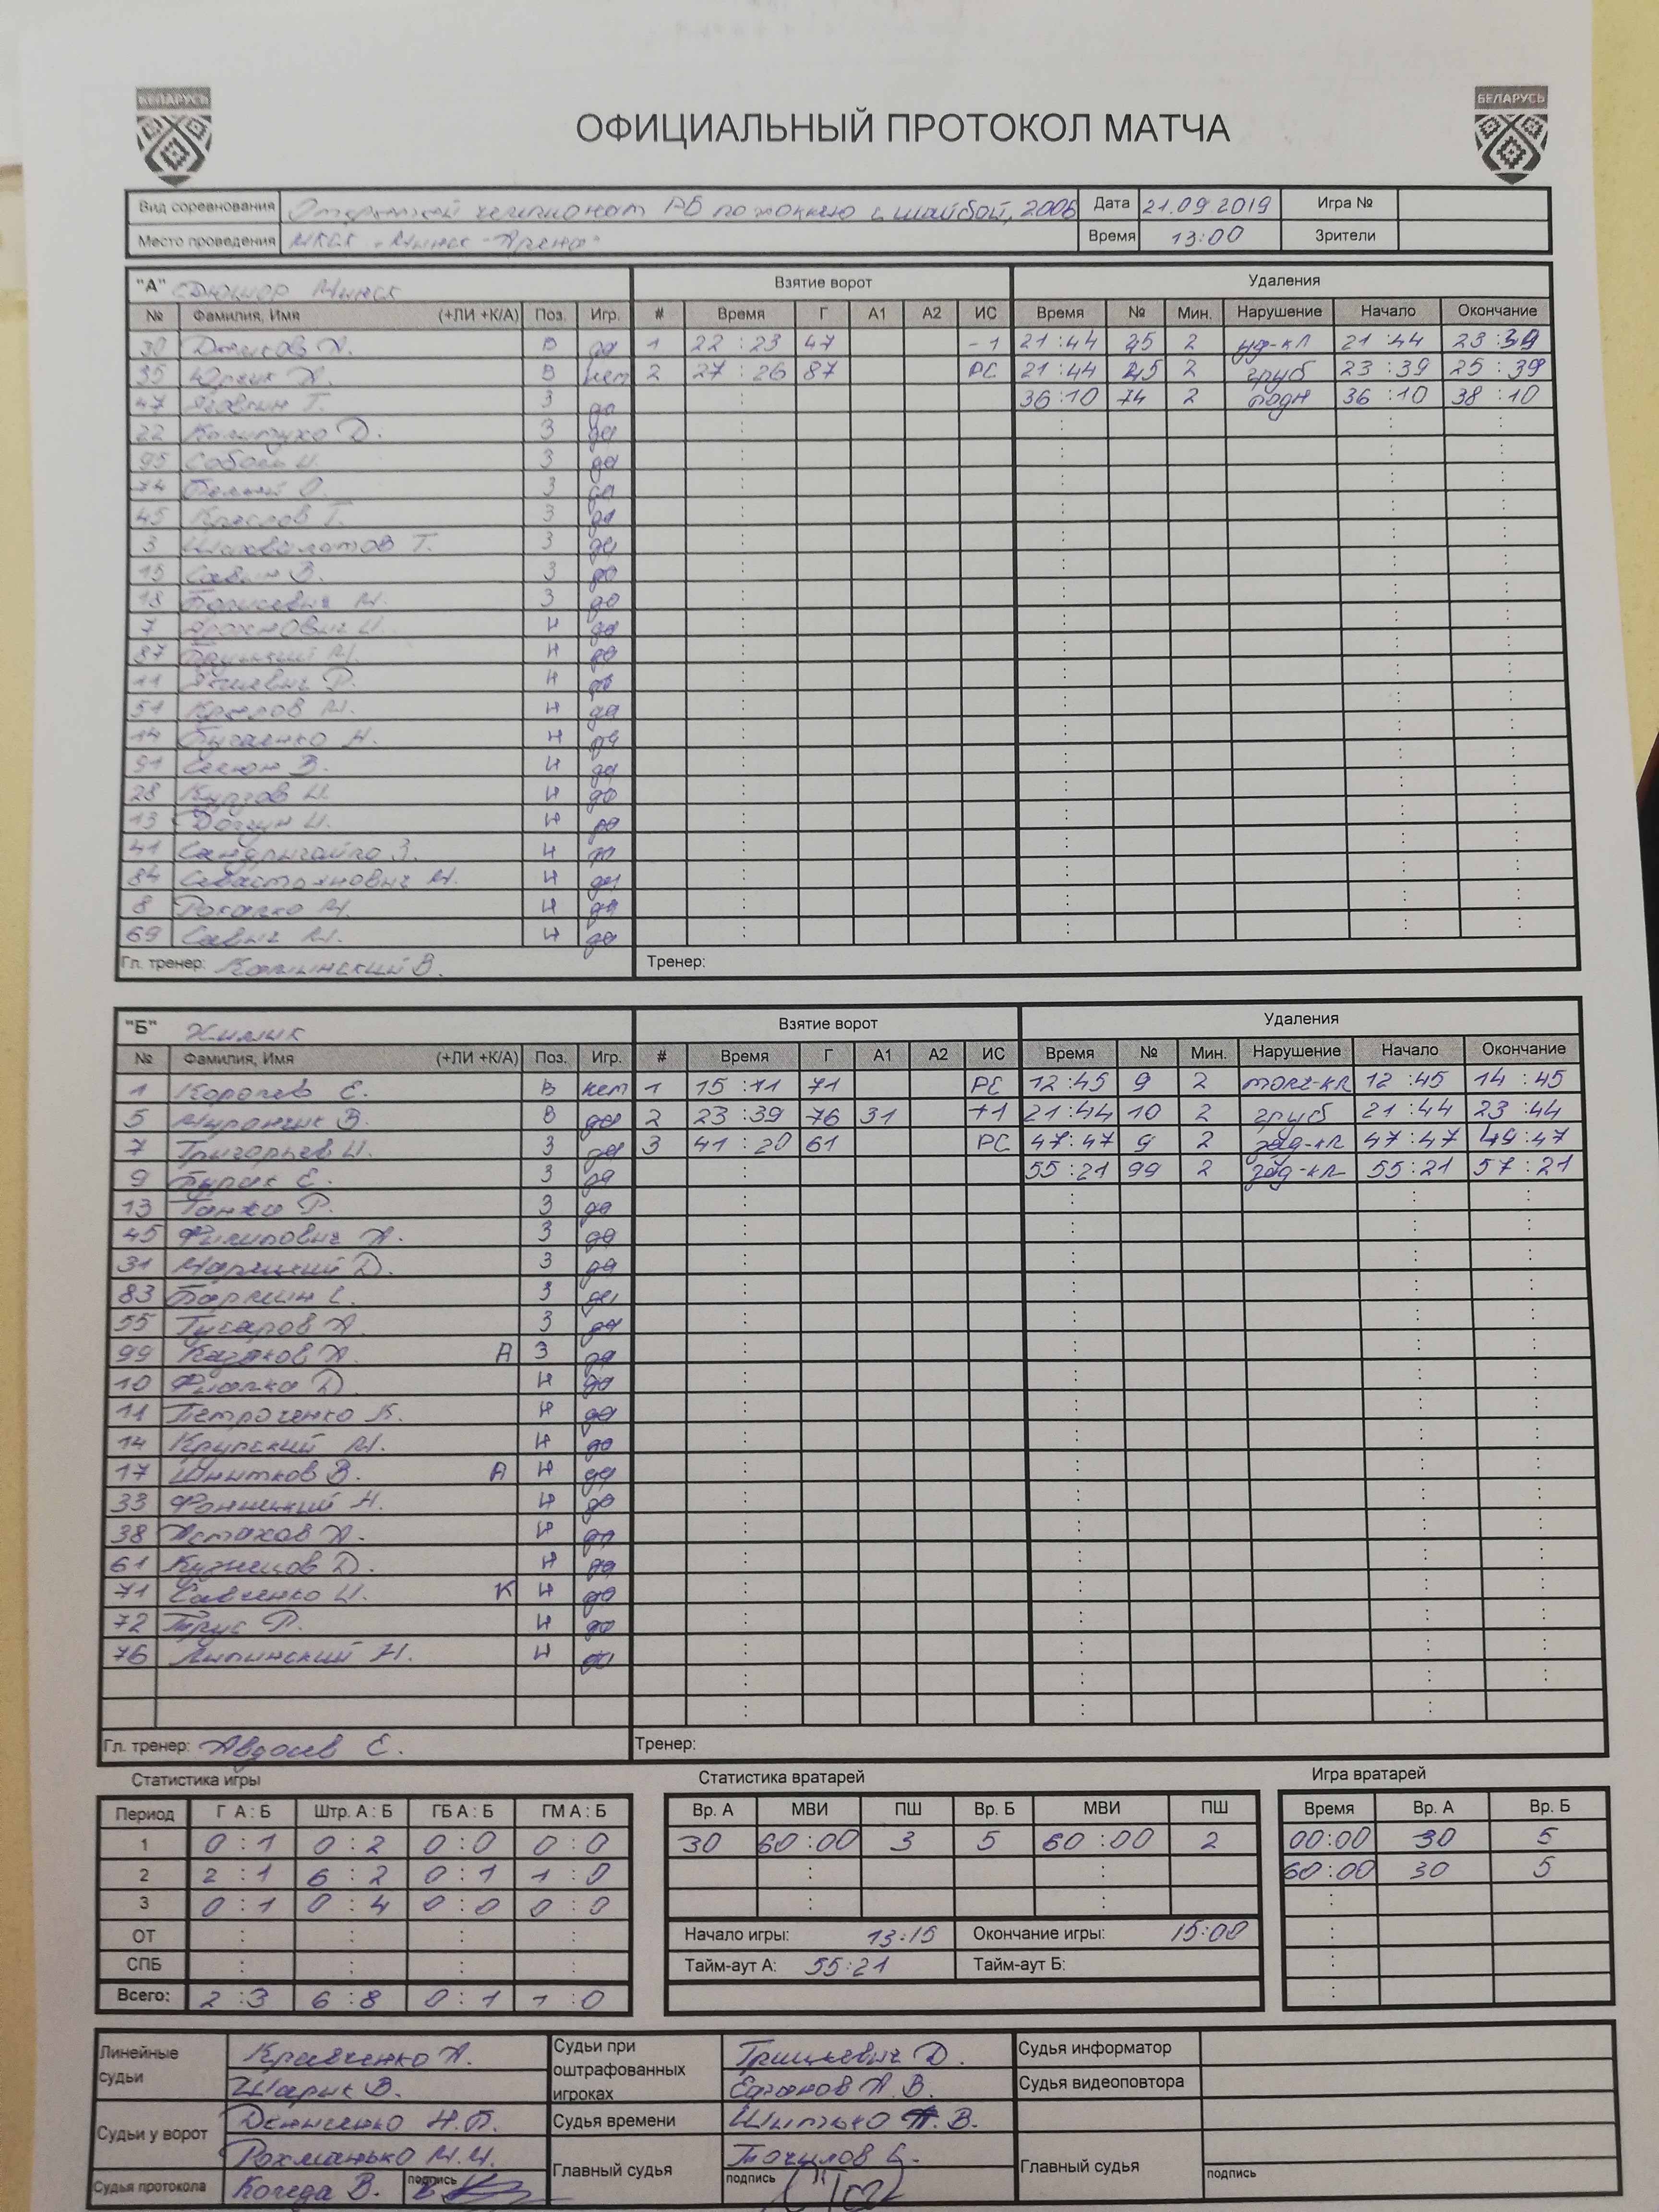 БЕЛАРУСЬ БЕЛАРУСЬ
ОФИЦИАЛЬНЫЙ ПРОТОКОЛ МАТЧА
Вид соревнования Открытый чемпионат РБ по хоккею с шайбой, 2006 Дата 21.09.2019 Игра №
Место проведения МКСК "Минск-Арена" Время 13:00 Зрители
"А" СДЮШОР Минск Взятие ворот Удаления
№ Фамилия, Имя (+ЛИ +К/А) Поз. Игр. # Время Г А1 А2 ИС Время № Мин. Нарушение Начало Окончание
30 В да 1 22:23 47 -1 21:44 45 2 уд-кл 21:44 23:39
35 Юрчик А. В нет 2 27:26 87 РС 21:44 45 2 груб 23:39 25:39
47 З да 36:10 74 2 подн 36:10 38:10
22 Д. З да
95 Соболь И. З да
74 Белый О. З да
45 Круглов Т. З да
3 Шахвалатов Т. З да
15 Савин З. З да
18 Борисевич М. З да
7 И. Н да
87 М. Н да
11 Р. Н да
51 Крылов М. Н да
14 Бугаенко А. Н да
91 В. Н да
28 И. Н да
13 Долгун И. Н да
41 Сандрыгайло З. Н да
84 Севастьянович М. Н да
8 М. Н да
69 Савич М. Н да
Гл. тренер: Калинский В. Тренер:
"Б" Химик Взятие ворот Удаления
№ Фамилия, Имя (+ЛИ +К/А) Поз. Игр. # Время Г А1 А2 ИС Время № Мин. Нарушение Начало Окончание
1 Королёв Е. В нет 1 15:11 71 РС 12:45 9 2 толч-кл 12:45 14:45
5 Муранчик В. В да 2 23:39 76 31 +1 21:44 10 2 груб 21:44 23:44
7 Григорьев И. З да 3 41:20 61 РС 47:47 9 2 зад-кл 47:47 49:47
9 Бурак Е. З да 55:21 99 2 зад-кл 55:21 57:21
13 Ганжа Р. З да
45 Филипович А. З да
31 Марецкий Д. З да
83 З да
55 Гусаров А. З да
99 Казаков А. А З да
10 Фиалко Д. Н да
11 Петроченко К. Н да
14 Крупский М. Н да
17 Шнитков В. А Н да
33 Н да
38 Астахов А. Н да
61 Кузнецов Д. Н да
71 Савченко И. К Н да
72 Трус Р. Н да
76 Липинский Н. Н да
Гл. тренер: Авдоев Е. Тренер:
Статистика игры Статистика вратарей Игра вратарей
Период Г А : Б Штр. А : Б ГБ А : Б ГМ А : Б Вр. А МВИ ПШ Вр. Б МВИ ПШ Время Вр. А Вр. Б
1 0:1 0:2 0:0 0:0 30 60:00 3 5 60:00 2 00:00 30 5
2 2:1 6:2 0:1 1:0 60:00 30 5
3 0:1 0:4 0:0 0:0
ОТ Начало игры: 13:15 Окончание игры: 15:00
СПБ Тайм-аут А: 55:21 Тайм-аут Б:
Всего: 2:3 6:8 0:1 1:0
Линейные судьи Кравченко А. Судьи при оштрафованных игроках Грицкевич Д. Судья информатор
Шарик В. Еганов А.В. Судья видеоповтора
Судьи у ворот Денисенко Н.Б. Судья времени Шитько В.
Рохманько М.И. Главный судья Точилов С. Главный судья
Судья протокола Когеда В. подпись подпись подпись